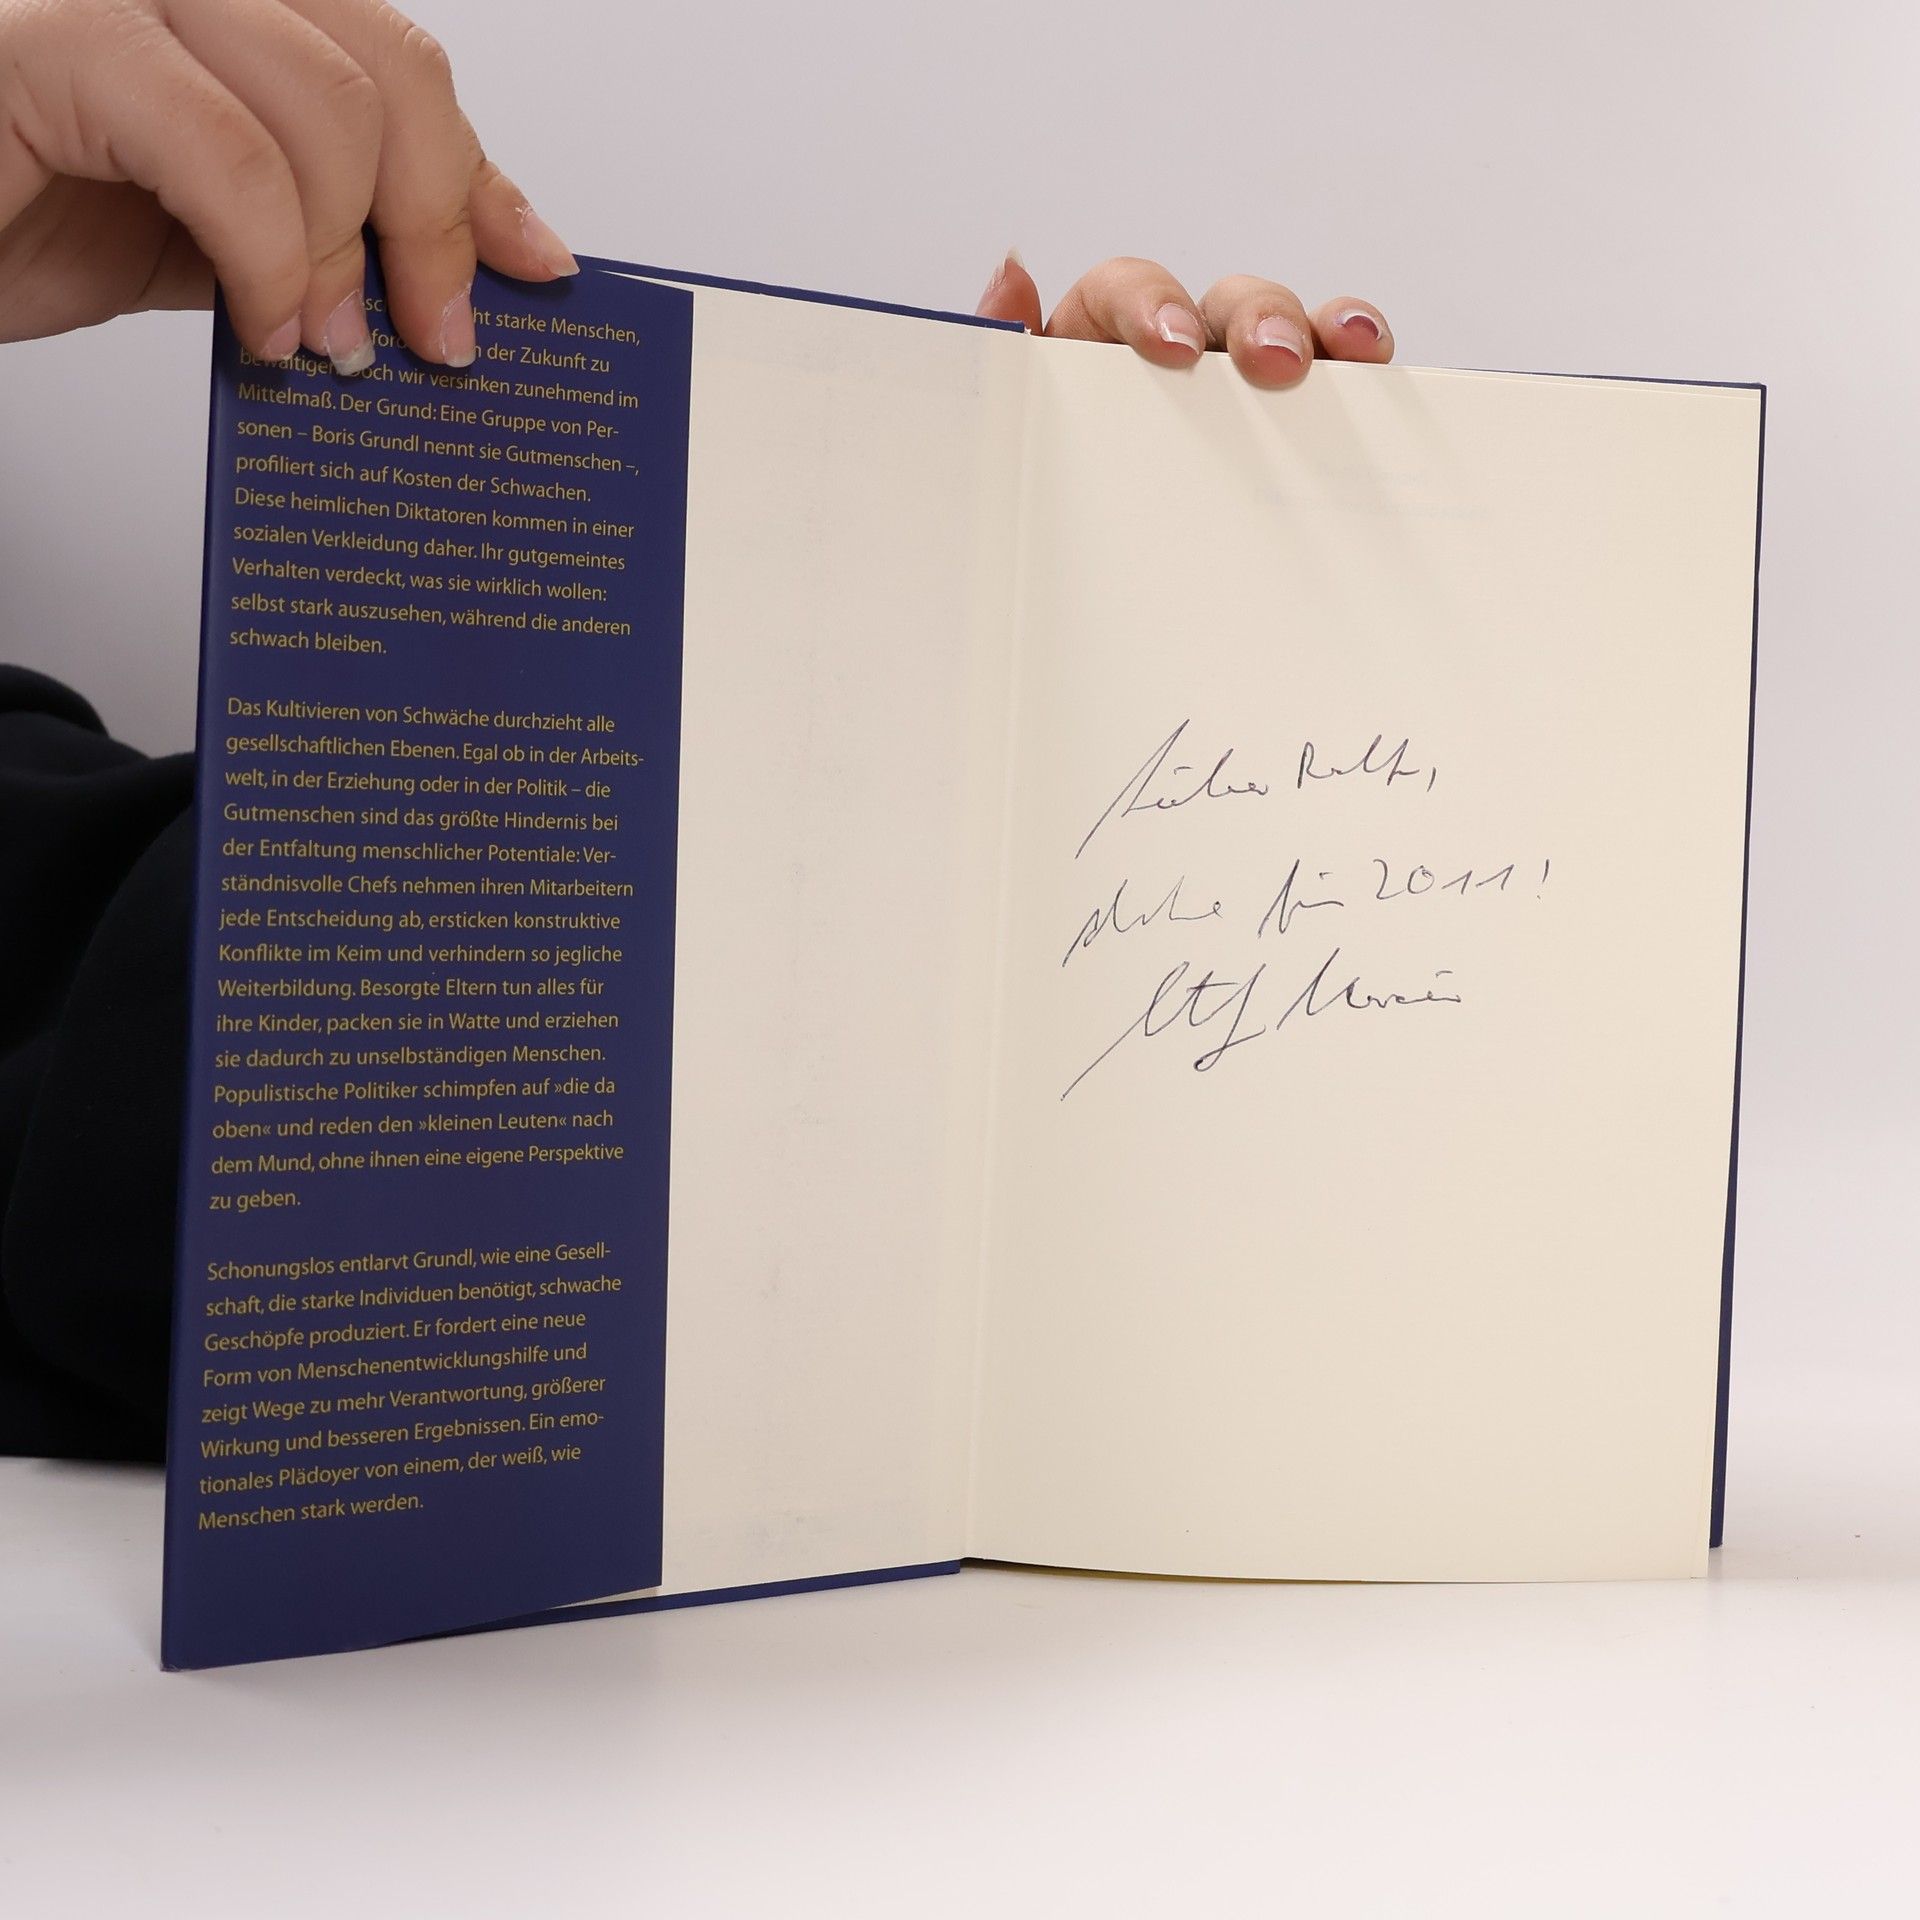 ht starke Menschen,
der Zukunft zu
bewältigen. Doch wir versinken zunehmend im
Mittelmaß. Der Grund: Eine Gruppe von Per-
sonen – Boris Grundl nennt sie Gutmenschen –,
profiliert sich auf Kosten der Schwachen.
Diese heimlichen Diktatoren kommen in einer
sozialen Verkleidung daher. Ihr gutgemeintes
Verhalten verdeckt, was sie wirklich wollen:
selbst stark auszusehen, während die anderen
schwach bleiben.
Das Kultivieren von Schwäche durchzieht alle
gesellschaftlichen Ebenen. Egal ob in der Arbeits-
welt, in der Erziehung oder in der Politik – die
Gutmenschen sind das größte Hindernis bei
der Entfaltung menschlicher Potentiale: Ver-
ständnisvolle Chefs nehmen ihren Mitarbeitern
jede Entscheidung ab, ersticken konstruktive
Konflikte im Keim und verhindern so jegliche
Weiterbildung. Besorgte Eltern tun alles für
ihre Kinder, packen sie in Watte und erziehen
sie dadurch zu unselbständigen Menschen.
Populistische Politiker schimpfen auf »die da
oben« und reden den »kleinen Leuten« nach
dem Mund, ohne ihnen eine eigene Perspektive
zu geben.
Schonungslos entlarvt Grundl, wie eine Gesell-
schaft, die starke Individuen benötigt, schwache
Geschöpfe produziert. Er fordert eine neue
Form von Menschenentwicklungshilfe und
zeigt Wege zu mehr Verantwortung, größerer
Wirkung und besseren Ergebnissen. Ein emo-
tionales Plädoyer von einem, der weiß, wie
Menschen stark werden.
Lieber Ralf,
für 2011!